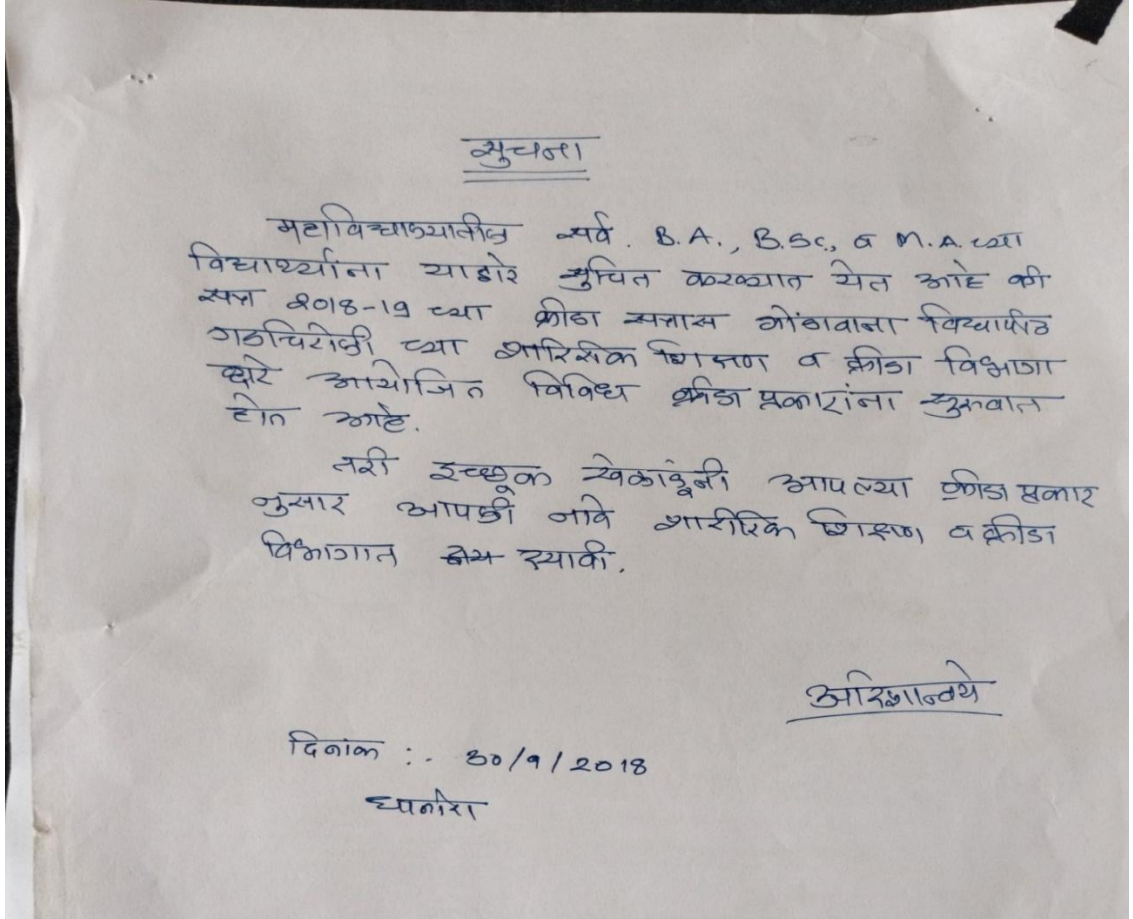 सुचना
महाविद्यालयातील सर्व. B.A., B.Sc., व M.A. च्या
विद्यार्थ्यांना याव्दारे सुचित करण्यात येत आहे की
सत्र 2018-19 च्या क्रीडा सत्रास गोंडवाना विद्यापीठ
गडचिरोली च्या शारिरीक शिक्षण व क्रीडा विभागा
व्दारे आयोजित विविध क्रीडा प्रकारांना सुरुवात
होत आहे.
तरी इच्छूक खेळाडूंनी आपल्या क्रीडा प्रकार
नुसार आपली नावे शारीरिक शिक्षण व क्रीडा
विभागात द्यावी.
दिनांक :- 30/9/2018
धानोरा